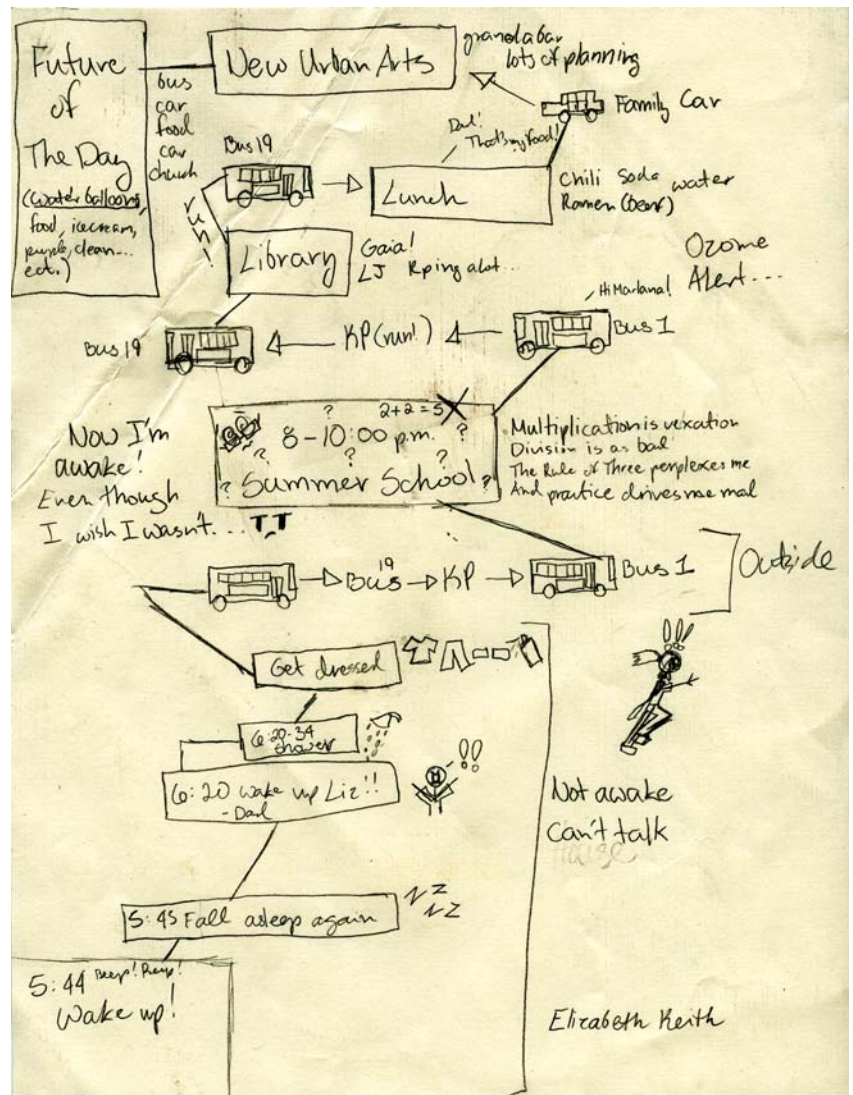 Future
of
The Day
(water balloons,
food, icecream,
purple, clean...
ect.)
bus
car
food
car
church
New Urban Arts
granola bar
lots of planning
Family Car
Dad!
That's my food!
Bus 19
run!
Lunch
Chili Soda water
Ramen (beer)
Library
Gaia!
LJ Rping alot...
Ozome
Alert...
Hi Marlana!
Bus 19
KP (run!)
Bus 1
Now I'm
awake!
Even though
I wish I wasn't... T_T
2+2=5
8-10:00 p.m.
Summer School
? ? ? ? ? ? ?
Multiplication is vexation
Division is as bad
The Rule of Three perplexes me
And practice drives me mad
Bus 19
KP
Bus 1
Outside
Get dressed
6:20-34
Shower
6:20 wake up Liz!!
- Dad
!!
!!
Not awake
Can't talk
House
5:45 Fall asleep again
zz
zz
5:44 Beep! Beep!
Wake up!
Elizabeth Keith